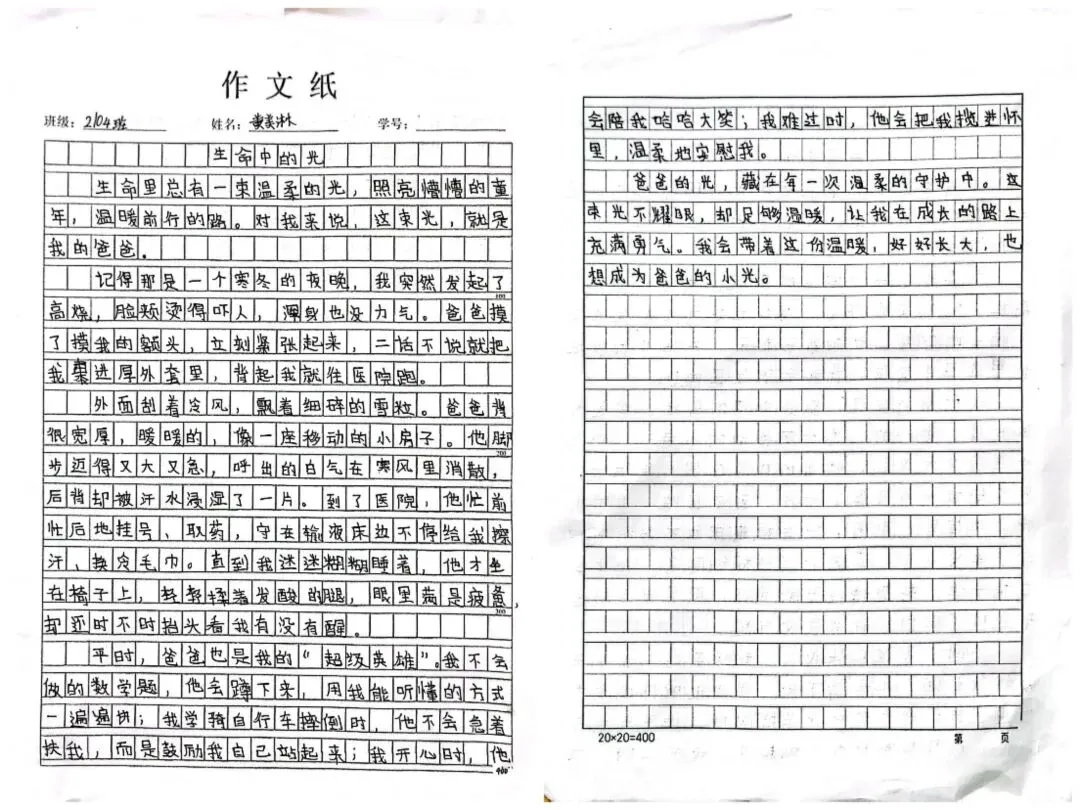 作文纸
班级：2104班 姓名：黄美淋 学号：
生命中的光
生命里总有一束温柔的光，照亮懵懵的童
年，温暖前行的路。对我来说，这束光，就是
我的爸爸。
记得那是一个寒冬的夜晚，我突然发起了
100
高烧，脸颊烫得吓人，浑身也没力气。爸爸摸
了摸我的额头，立刻紧张起来，二话不说就把
我裹进厚外套里，背起我就往医院跑。
外面刮着冷风，飘着细碎的雪粒。爸爸背
很宽厚，暖暖的，像一座移动的小房子。他脚
200
步迈得又大又急，呼出的白气在寒风里消散，
后背却被汗水浸湿了一片。到了医院，他忙前
忙后地挂号、取药，守在输液床边不停给我擦
汗、换冷毛巾。直到我迷迷糊糊睡着，他才坐
在椅子上，轻轻揉着发酸的腿，眼里满是疲惫，
300
却还时不时抬头看我有没有醒。
平时，爸爸也是我的“超级英雄”。我不会
做的数学题，他会蹲下来，用我能听懂的方式
一遍遍讲；我学骑自行车摔倒时，他不会急着
扶我，而是鼓励我自己站起来；我开心时，他
400
会陪我哈哈大笑；我难过时，他会把我揽进怀
里，温柔地安慰我。
爸爸的光，藏在每一次温柔的守护中。这
束光不耀眼，却足够温暖，让我在成长的路上
充满勇气。我会带着这份温暖，好好长大，也
想成为爸爸的小光。
20×20=400 第 页